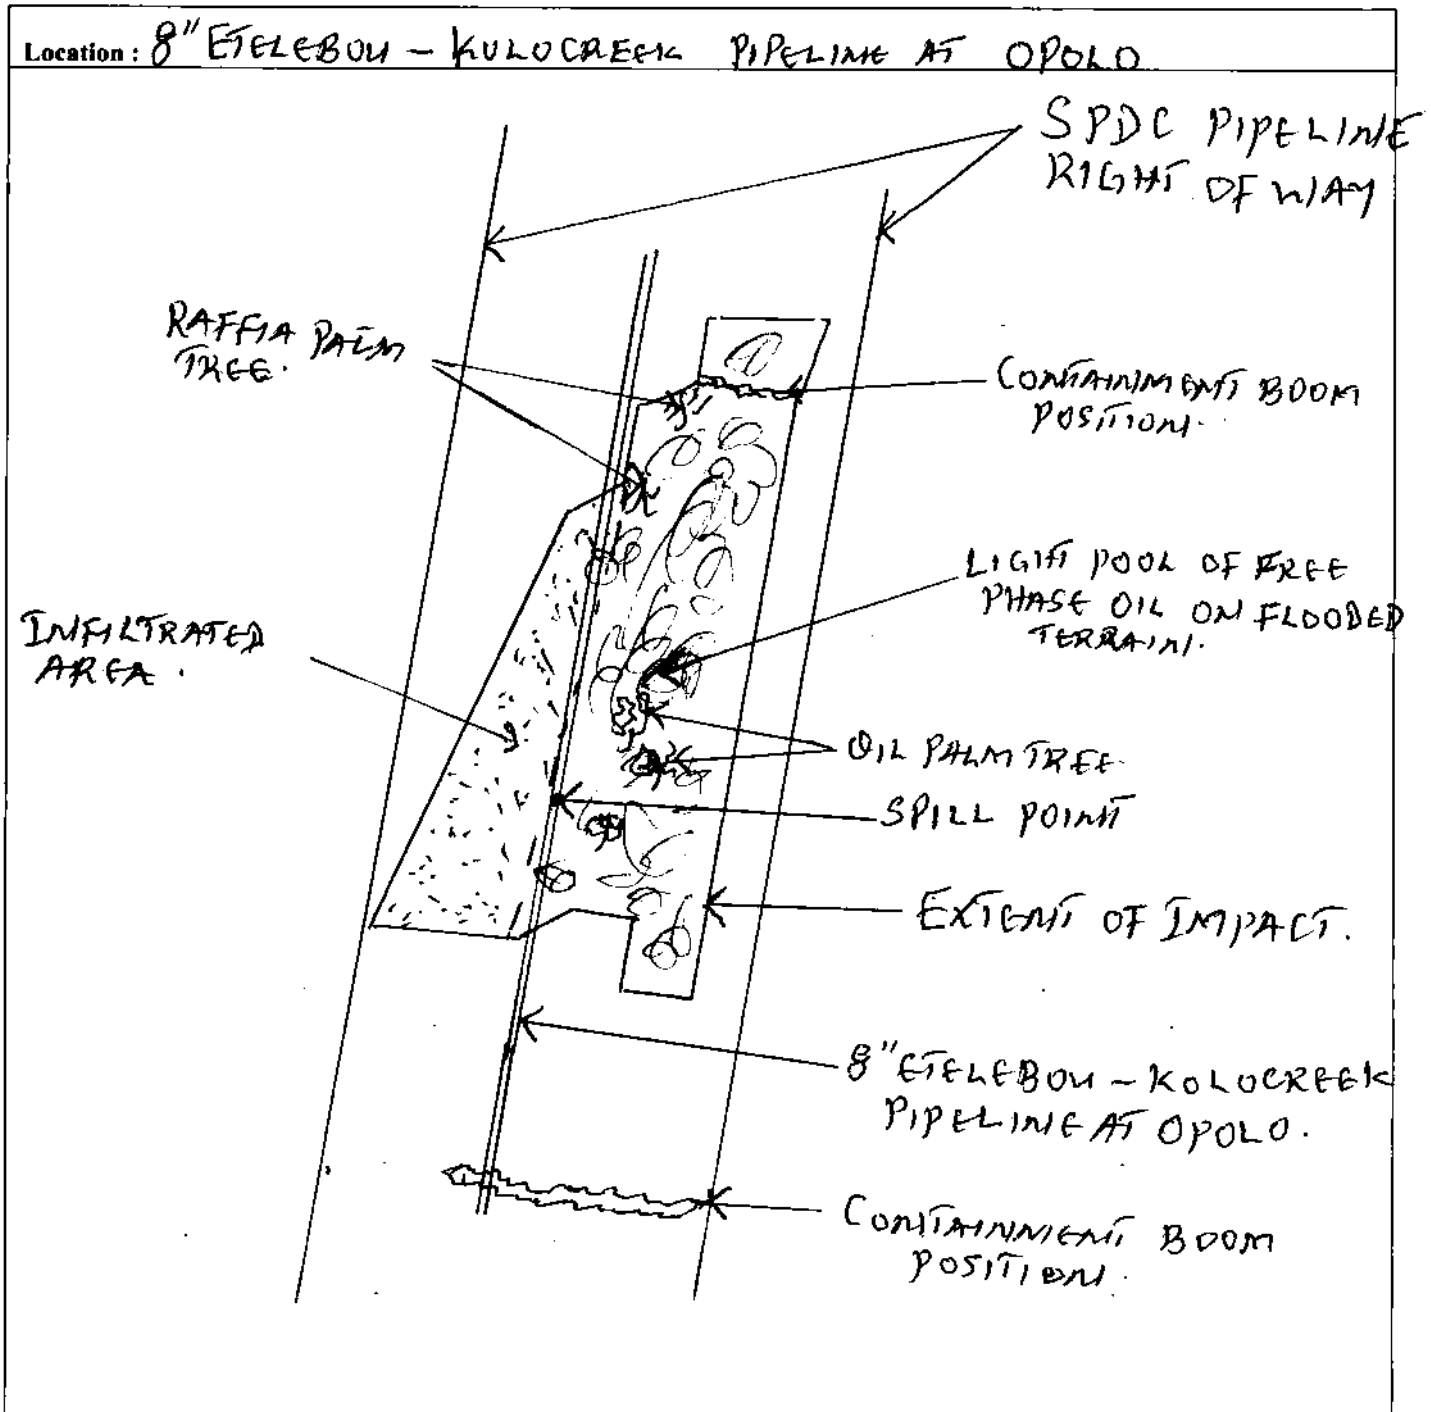 Location : 8" ETELEBOU - KULOCREEK PIPELINE AT OPOLO
SPDC PIPELINE
RIGHT OF WAY
RAFFIA PALM
TREE.
CONTAINMENT BOOM
POSITION.
LIGHT POOL OF FREE
PHASE OIL ON FLOODED
TERRAIN.
INFILTRATED
AREA.
OIL PALM TREE
SPILL POINT
EXTENT OF IMPACT.
8" ETELEBOU - KOLOCREEK
PIPELINE AT OPOLO.
CONTAINMENT BOOM
POSITION.